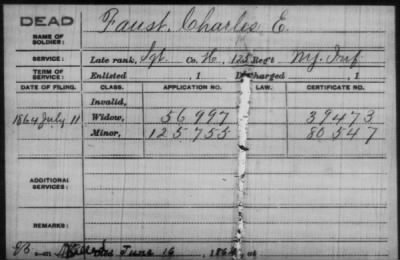 DEAD
NAME OF SOLDIER: Faust, Charles E.
SERVICE: Late rank, Sgt. Co. H, 125 Reg't N.Y. Inf
TERM OF SERVICE: Enlisted , 1 Discharged , 1
DATE OF FILING. CLASS. APPLICATION NO. LAW. CERTIFICATE NO.
Invalid,
1864 July 11 Widow, 56997 39473
Minor, 125755 80547
ADDITIONAL SERVICES:
REMARKS:
Died June 16, 1864, at